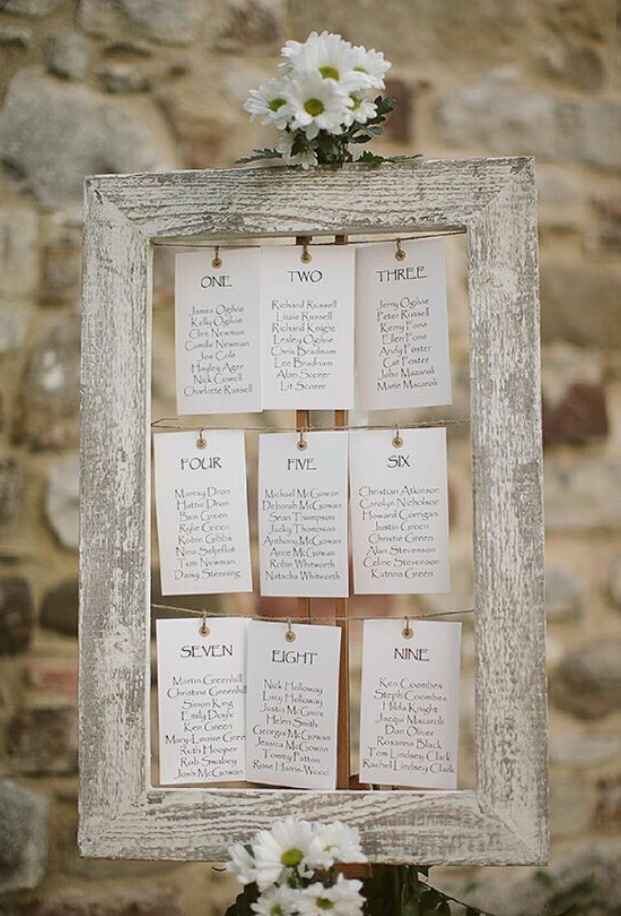 ONE
James Ogilvie
Kelly Ogilvie
Clive Newman
Camilla Newman
Joe Cole
Hayley Ager
Nick Cowell
Charlotte Russell
TWO
Richard Russell
Lizzie Russell
Richard Knight
Lesley Ogilvie
Chris Bradnam
Lee Bradnam
Alan Scorer
Lit Scorer
THREE
Jerry Ogilvie
Peter Russell
Kerry Fone
Ellen Fone
Andy Foster
Cat Foster
Julio Mazarak
Marie Macarok
FOUR
Murray Dron
Hattie Dron
Ben Green
Rylie Green
Robin Gibbs
Nina
Tom Dixon
Daisy Stenning
FIVE
Michael McGowan
Deborah McGowan
Sean Thompson
Jacky Thompson
Anthony McGowan
Anne McGowan
Robin Whitworth
Natacha Whitworth
SIX
Christian Atkinson
Carolyn Nicholson
Howard Corrigan
Justin Green
Christie Green
Alan Stevenson
Celine Stevenson
Katrina Green
SEVEN
Martin Greenhill
Christine Greenhill
Simon King
Emily Doyle
Ken Green
Mary-Louise Green
Ruth Hooper
Rob Smaley
Josh McGowan
EIGHT
Nick Holloway
Lucy Holloway
Justin McGuire
Helen Smith
Georgia McGowan
Jessica McGowan
Tommy Parking
Rosie Harris-Wood
NINE
Ken Coombes
Steph Coombes
Hilda Knight
Jacqui Macarok
Dan Oliver
Roxanna Black
Tom Lindsey Clark
Rachel Lindsey Clark